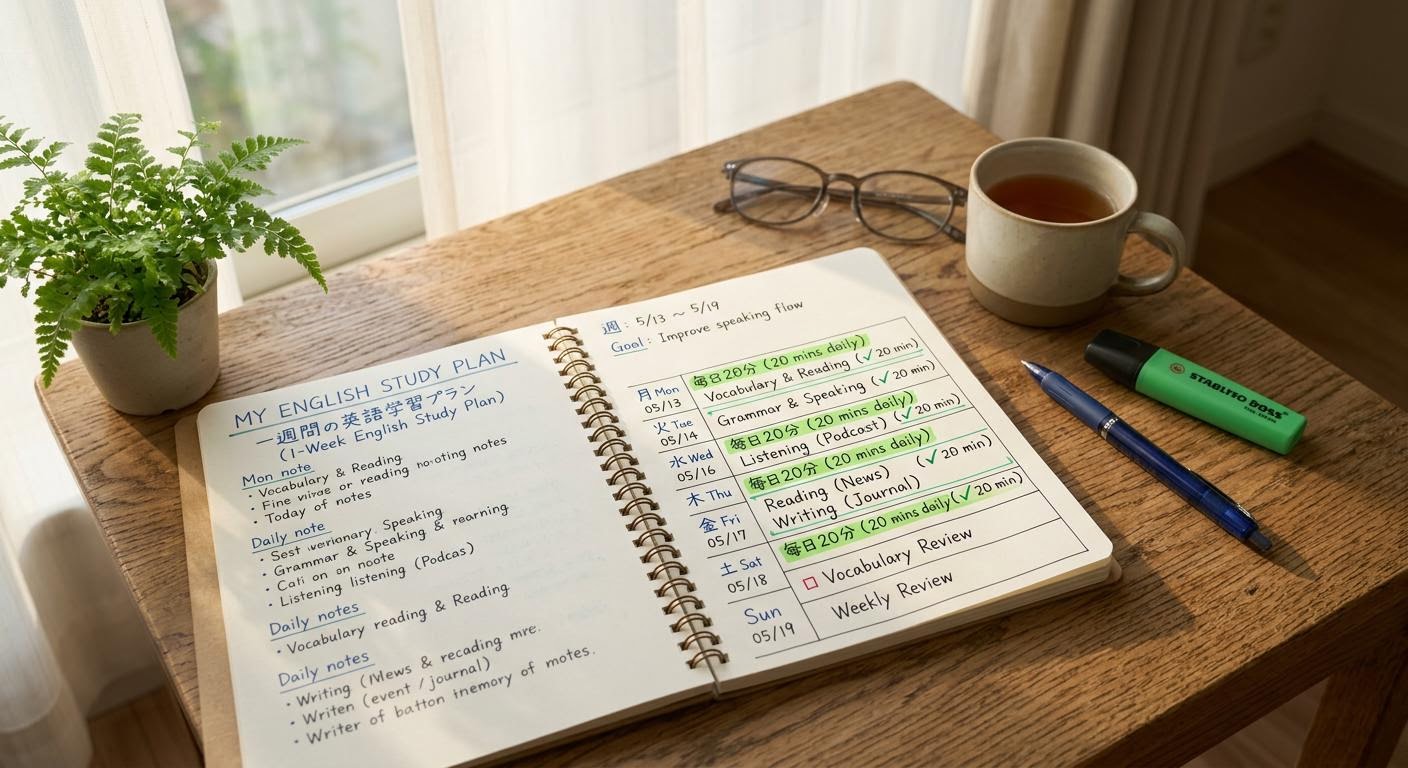 MY ENGLISH STUDY PLAN
一週間の英語学習プラン
(1-Week English Study Plan)
Mon note
• Vocabulary & Reading
• Fine or reading notes
• Today of notes
Daily note
• Sest Speaking
• Grammar & Speaking & rearning
• Cali on on noote
• Listening listening (Podcas)
Daily notes
• Vocabulary reading & Reading
Daily notes
• Writing (Mews & recading mre.
• Writen (event / journal)
• Writer of batton tnemory of motes.
週: 5/13 ~ 5/19
Goal: Improve speaking flow
月 Mon
05/13
毎日20分 (20 mins daily)
Vocabulary & Reading (✓ 20 min)
火 Tue
05/14
Grammar & Speaking (✓ 20 min)
毎日20分 (20 mins daily)
水 Wed
05/16
Listening (Podcast) (✓ 20 min)
毎日20分 (20 mins daily)
木 Thu
Reading (News) (✓ 20 min)
Writing (Journal)
金 Fri
05/17
毎日20分 (20 mins daily (✓ 20 min)
土 Sat
05/18
□ Vocabulary Review
Sun
05/19
Weekly Review
STABILO BOSS